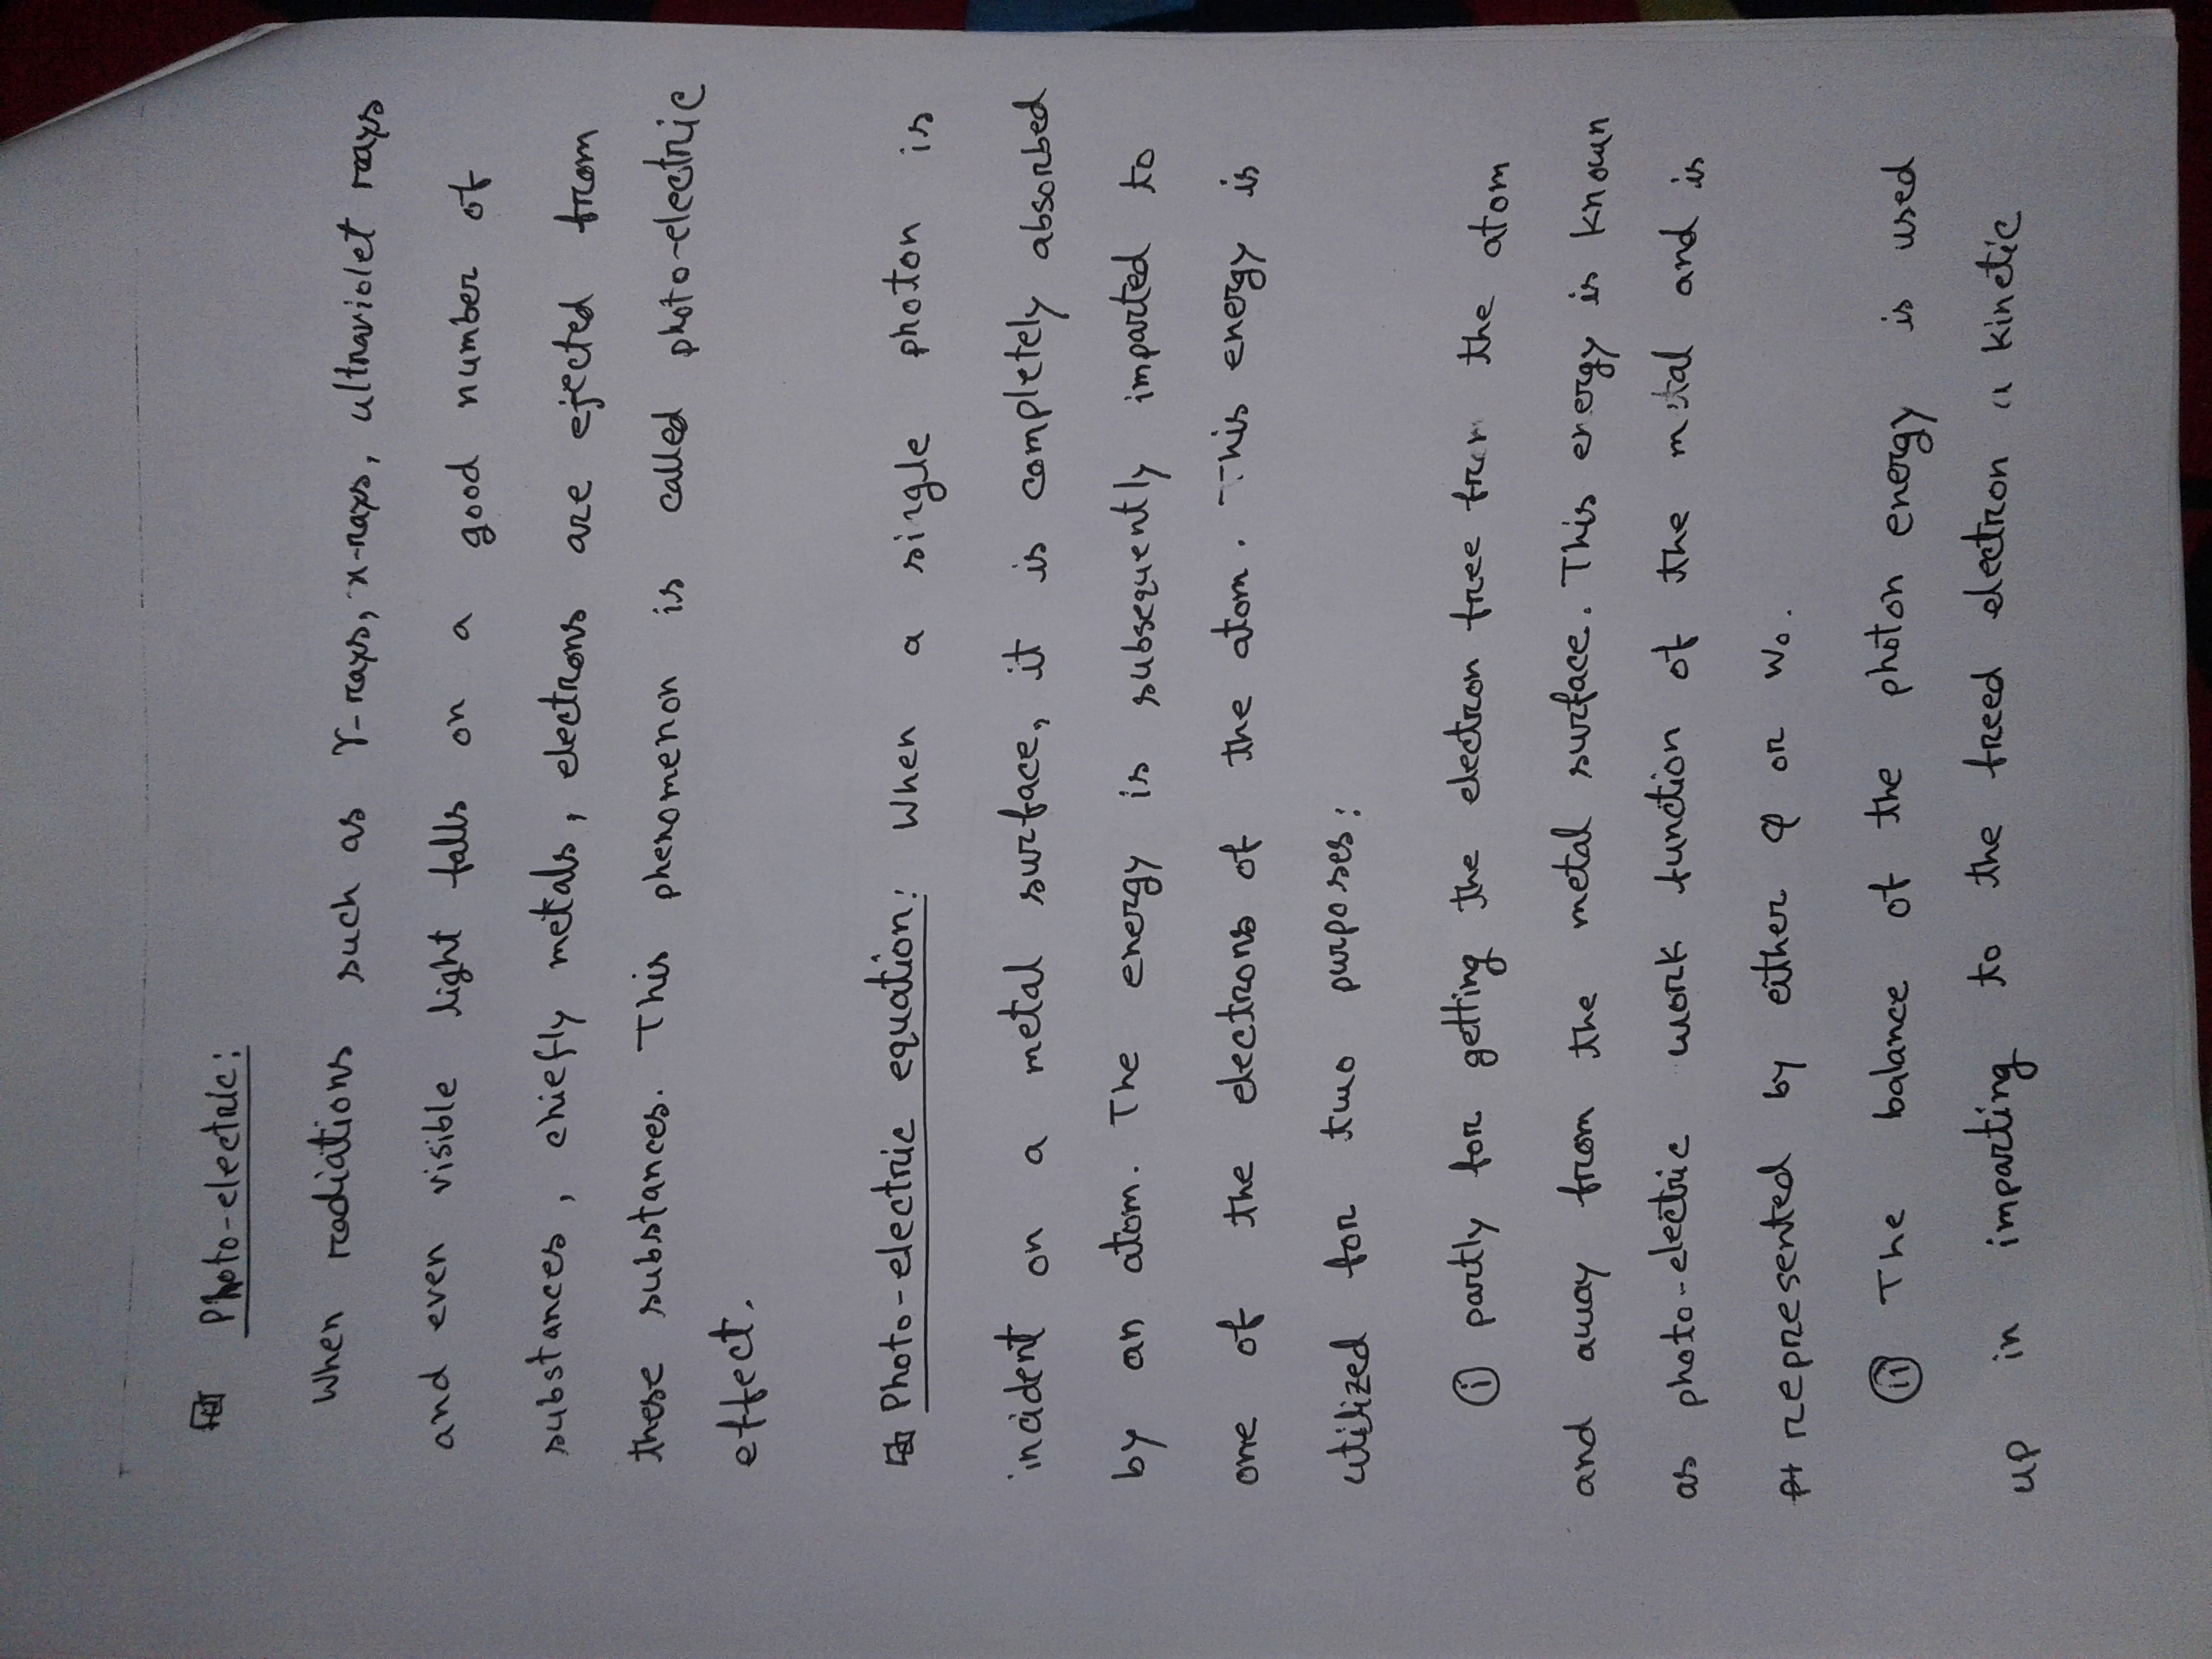 Photo-electric:
When radiations such as γ-rays, x-rays, ultraviolet rays
and even visible light falls on a good number of
substances, chiefly metals, electrons are ejected from
these substances. This phenomenon is called photo-electric
effect.
Photo-electric equation: When a single photon is
incident on a metal surface, it is completely absorbed
by an atom. The energy is subsequently imparted to
one of the electrons of the atom. This energy is
utilized for two purposes:
(i) partly for getting the electron free from the atom
and away from the metal surface. This energy is known
as photo-electric work function of the metal and is
represented by either φ or W₀.
(ii) The balance of the photon energy is used
up in imparting to the freed electron a kinetic